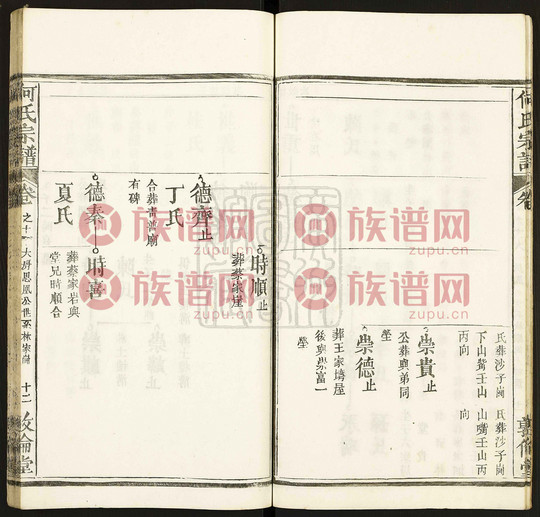 何氏宗
氏葬沙子崗
下山嘴壬山
丙向
氏葬沙子崗
山嘴壬山丙
向
崇貴止
公葬與弟同
塋
崇德止
葬王家塆屋
後與崇富一
塋
時順止
葬蔡家屋
德齊止
丁氏
合葬青
廟
有碑
德泰
時喜
葬蔡家岩與
堂兄時順合
夏氏
何氏宗譜
卷
之十一
大屏恩凰公世系林家
十二
敦倫堂
族谱网
zupu.cn
族谱网
zupu.cn
族谱网
zupu.cn
族谱网
zupu.cn